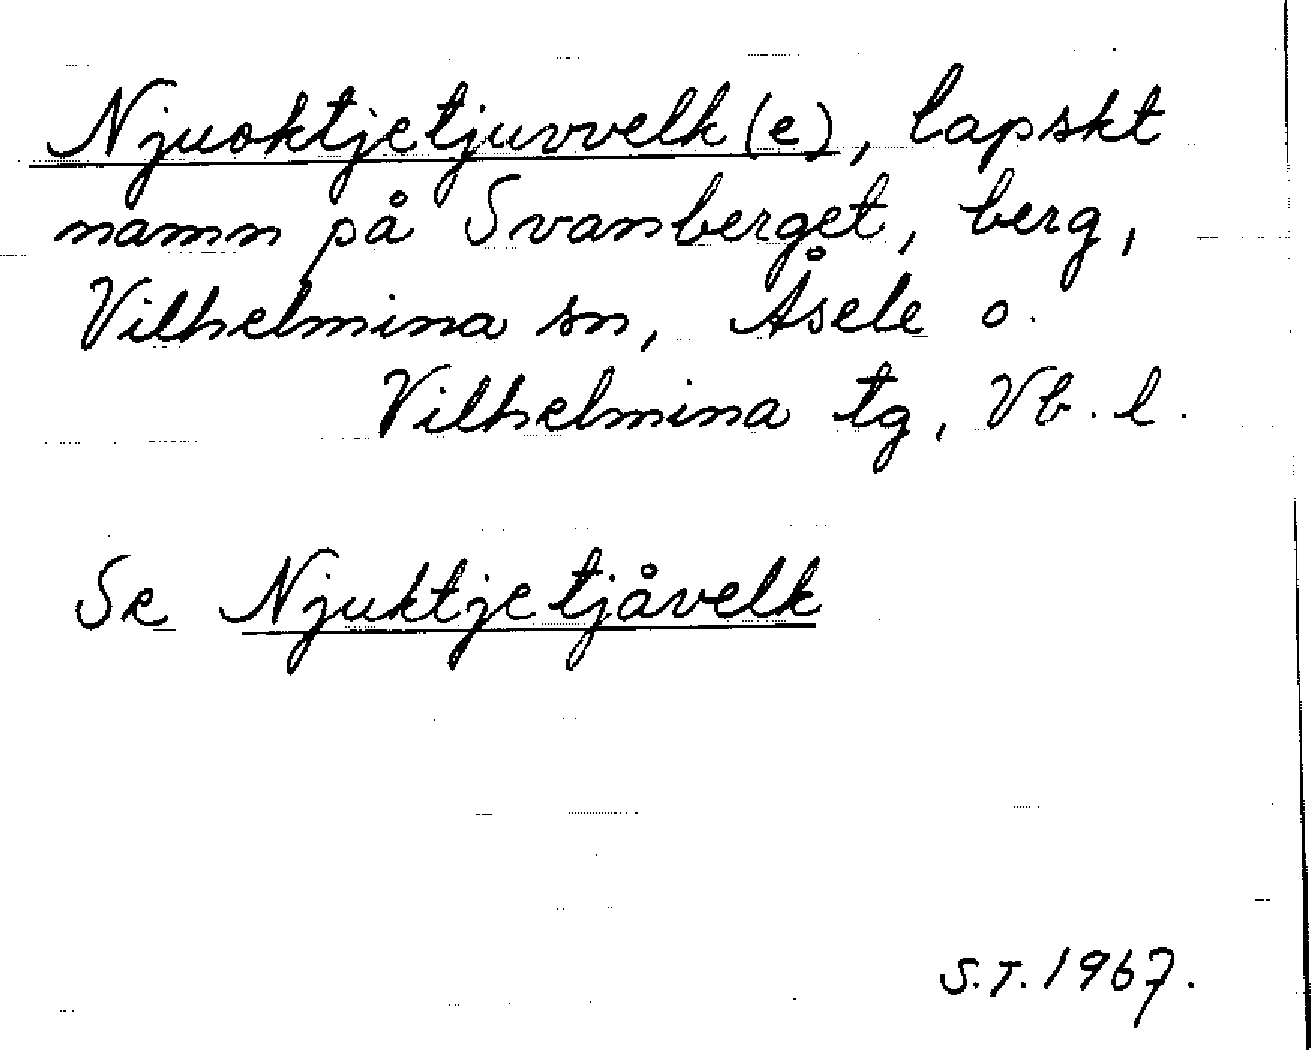 Njuoktjetjuvvelk(e), lapskt
namn på Svanberget, berg,
Vilhelmina sn, Åsele o.
Vilhelmina tg, Vb. l.
Se Njuktjetjåvelk
S.T. 1967.